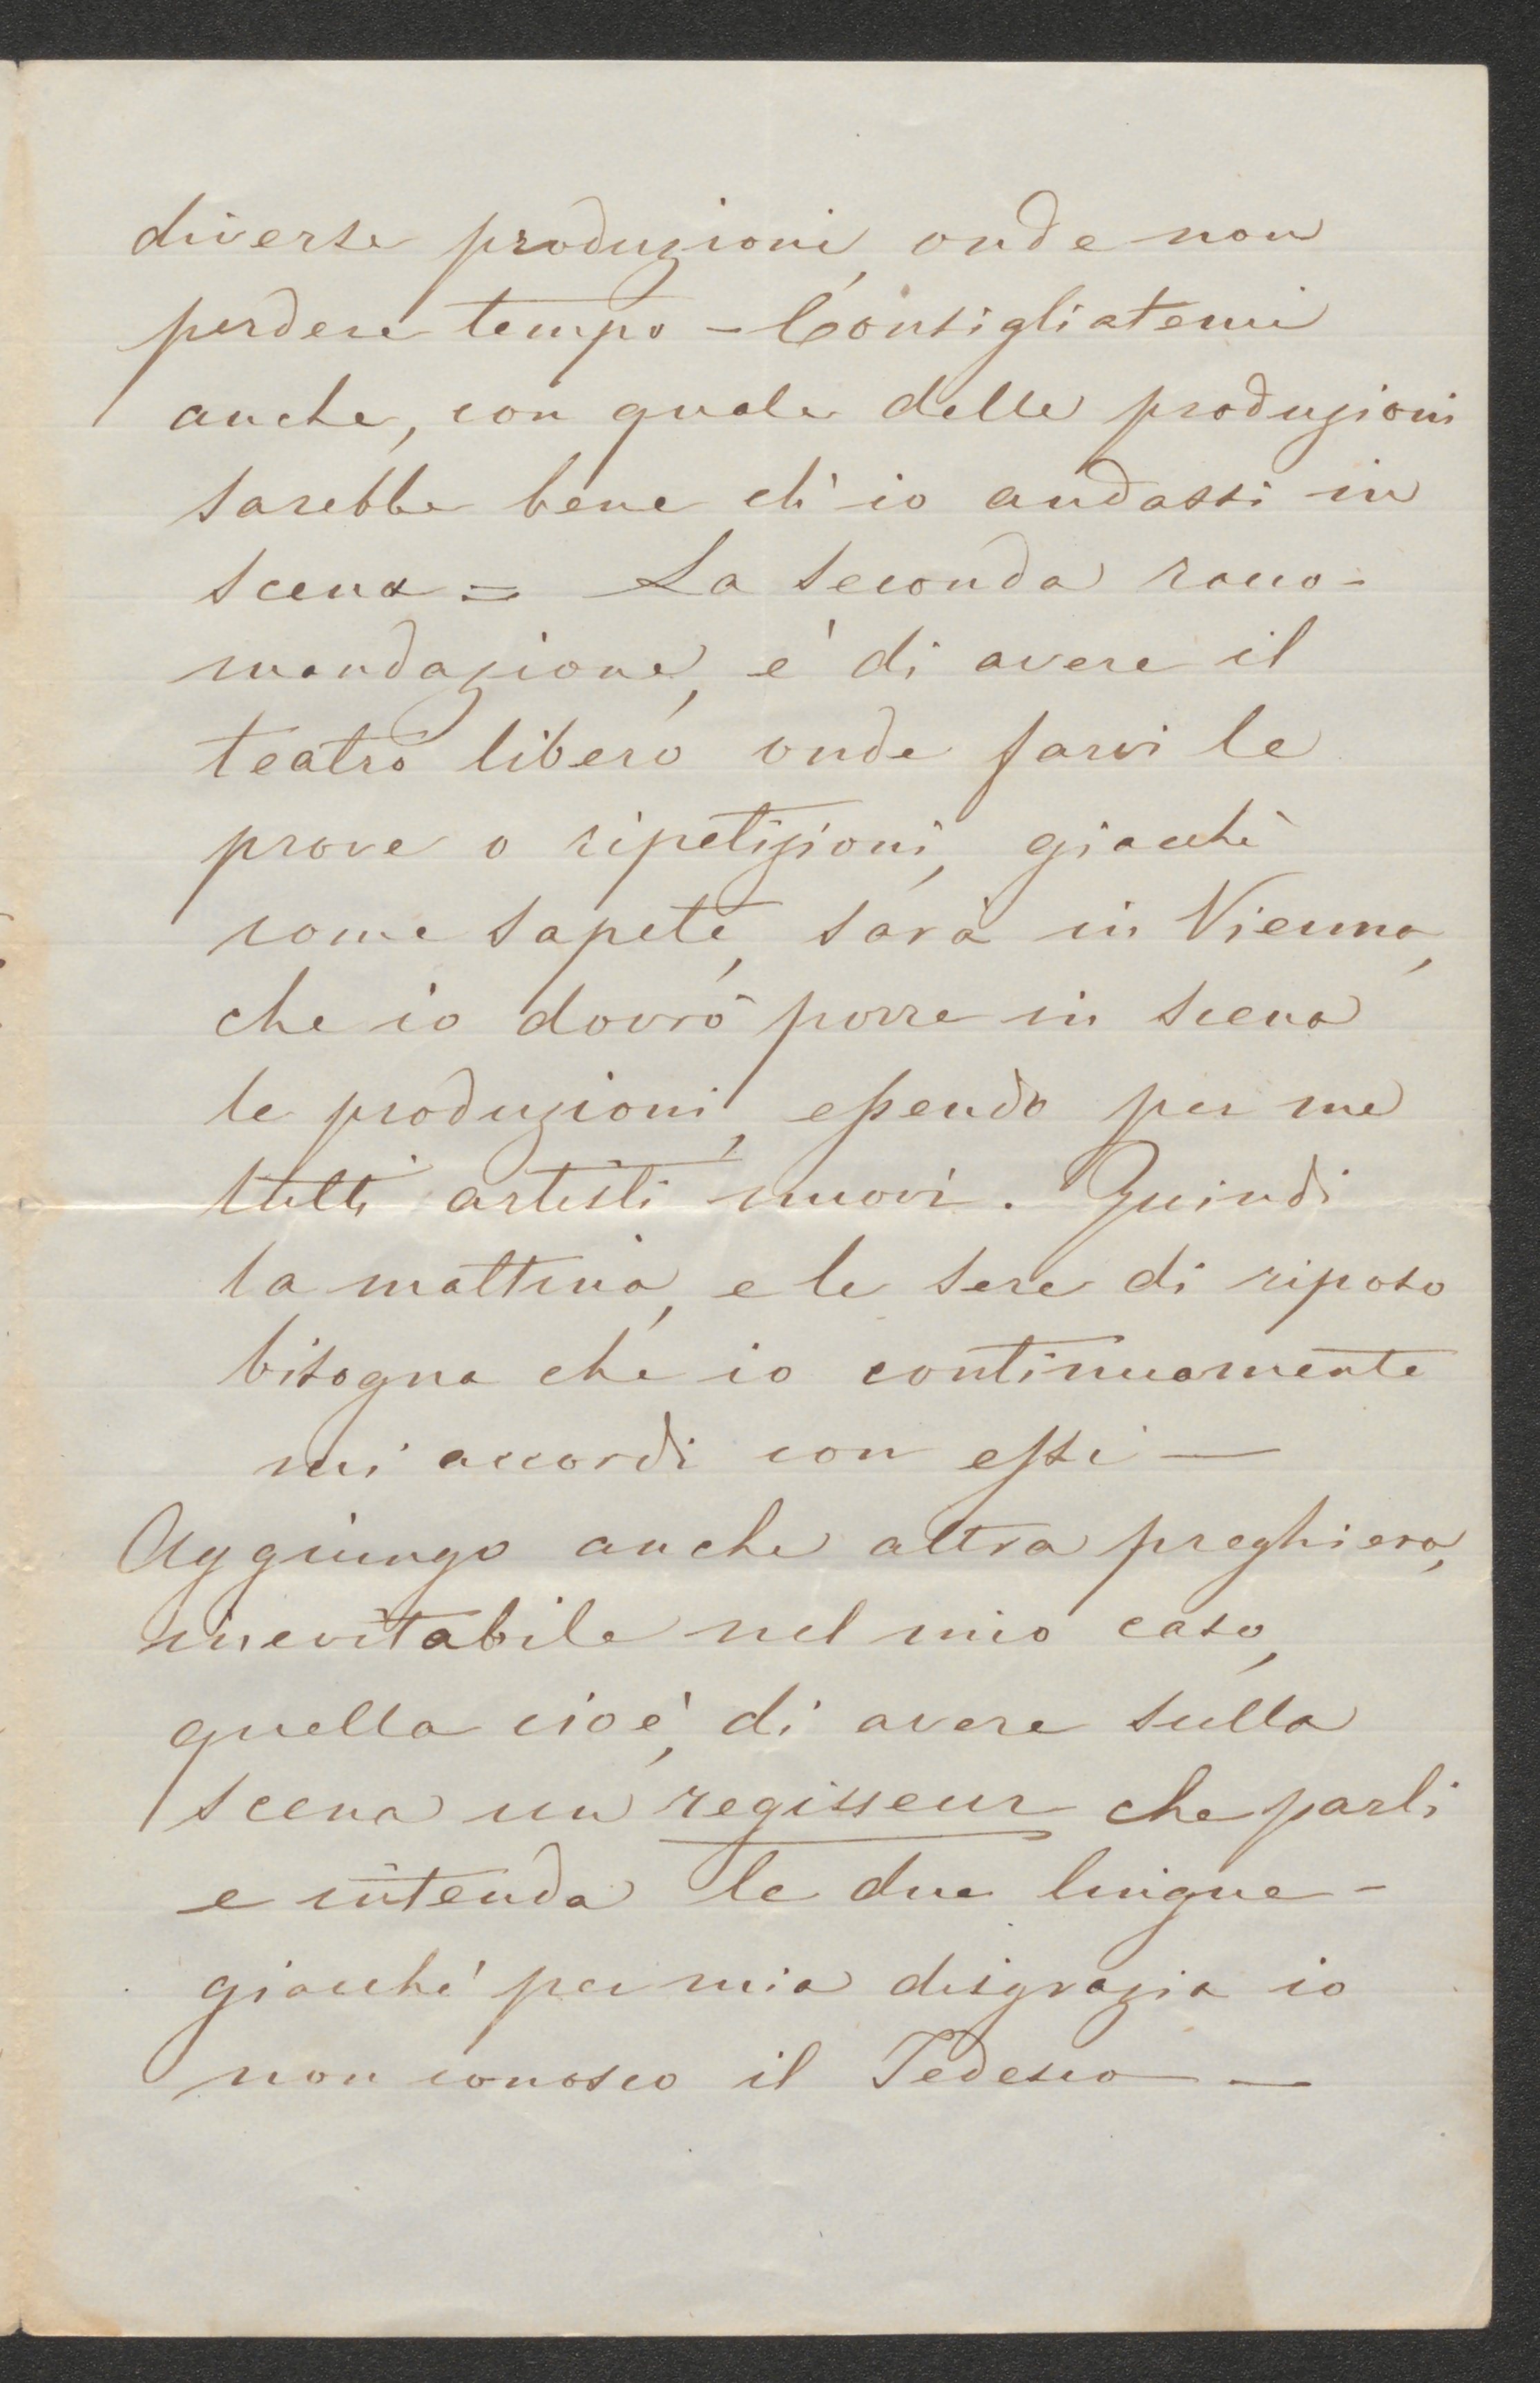 diverse produzioni, onde non
perdere tempo – Consigliatemi
anche, con quale delle produzioni
sarebbe bene ch'io andassi in
scena = La seconda raco-
mandazione, è di avere il
teatro libero onde farvi le
prove o ripetizioni, giacchè
come sapete, sarà in Vienna,
che io dovrò porre in scena
le produzioni, essendo per me
tutti artisti nuovi. Quindi
la mattina, e le sere di riposo
bisogna che io continuamente
mi accordi con essi —
Aggiungo anche altra preghiera,
inevitabile nel mio caso,
quella cioè, di avere sulla
scena un regisseur che parli
e intenda le due lingue –
giacchè per mia disgrazia io
non conosco il Tedesco —